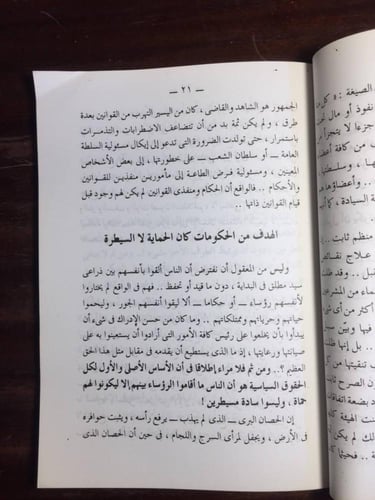 — ٢١ —
الجمهور هو الشاهد والقاضى ، كان من اليسير التهرب من القوانين بعدة
طرق ، ولم يكن ثمة بد من أن تتضاعف الاضطرابات والتذمرات
باستمرار ، حتى تولدت الضرورة التى تدعو إلى إيكال مسئولية السلطة
العامة — أو سلطان الشعب — على خطورتها ، إلى بعض الأشخاص
المعينين ، ومسئولية فرض الطاعة إلى مأمورين منفذين للقوانين
والأحكام .. فالواقع أن الحكام ومنفذى القوانين لم يكن لهم وجود قبل
قيام القوانين ذاتها ..
الهدف من الحكومات كان الحماية لا السيطرة
وليس من المعقول أن نفترض أن الناس ألقوا بأنفسهم بين ذراعى
سيد مطلق فى البداية ، دون ما قيد أو تحفظ .. فهم فى الواقع لم يختاروا
لأنفسهم رؤساء — أو حكاما — ألا ليقوا أنفسهم الجور ، وليحموا
حياتهم وحرياتهم وممتلكاتهم .. وما كان من حسن الإدراك فى شىء أن
يبدأوا بأن يخلعوا على رئيس كافة الأمور التى أرادوا أن يستعينوا به على
صيانتها ورعايتها ، إذ ما الذى يستطيع أن يقدمه فى مقابل مثل هذا الحق
العظيم ؟.. ومن ثم فلا مراء إطلاقا فى أن الأساس الأصلى والأول لكل
الحقوق السياسية هو أن الناس ما أقاموا الرؤساء بينهم إلا ليكونوا لهم
حماة ، وليسوا سادة مسيطرين !
إن الحصان البرى — الذى لم يهذب — يرفع رأسه ، ويثبت حوافره
فى الأرض ، ويجفل لمرأى السرج واللجام ، فى حين أن الحصان الذى